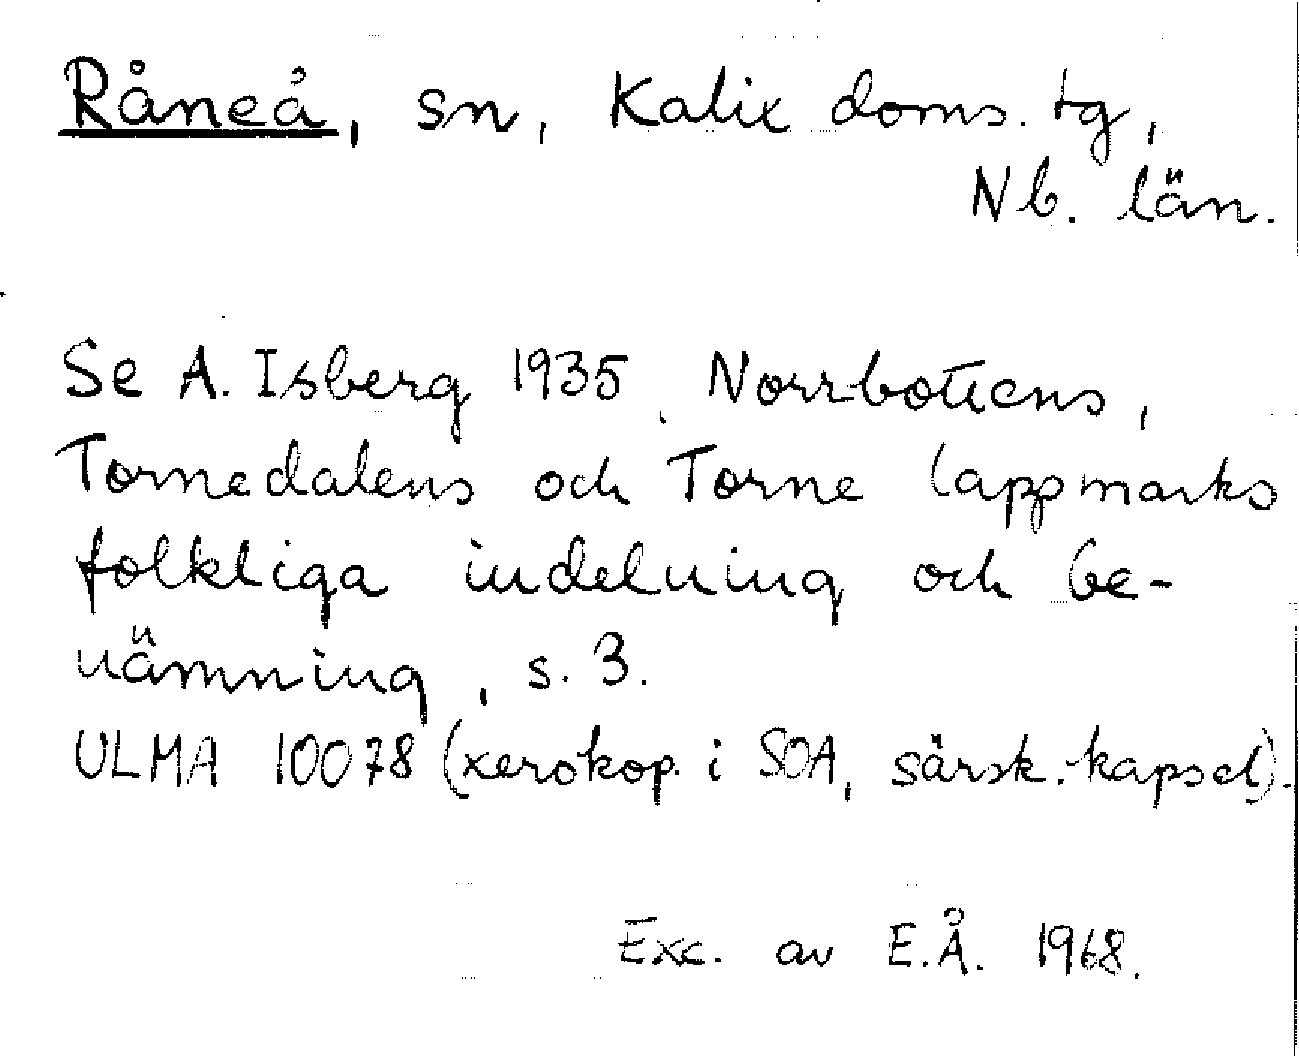 Råneå, sn, Kalix doms. tg,
Nb. län.
Se A. Isberg 1935, Norrbottens,
Tornedalens och Torne lappmarks
folkliga indelning och be-
nämning, s. 3.
ULMA 10078 (xerokop. i SOA, särsk. kapsel).
Exc. av E.Å. 1968.